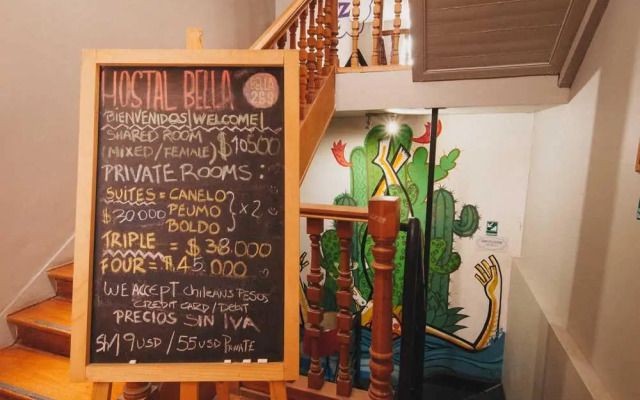 HOSTAL BELLA
BELLA
269
BIENVENIDOS|WELCOME!
SHARED ROOM
(MIXED/FEMALE) $10500
PRIVATE ROOMS:
SUITES = CANELO
$30000 PEUMO } x2
BOLDO
TRIPLE = $38.000
FOUR = $45.000
WE ACCEPT chileans PESOS
CREDIT CARD / DEBIT
PRECIOS SIN IVA
19USD / 55USD PRIVATE